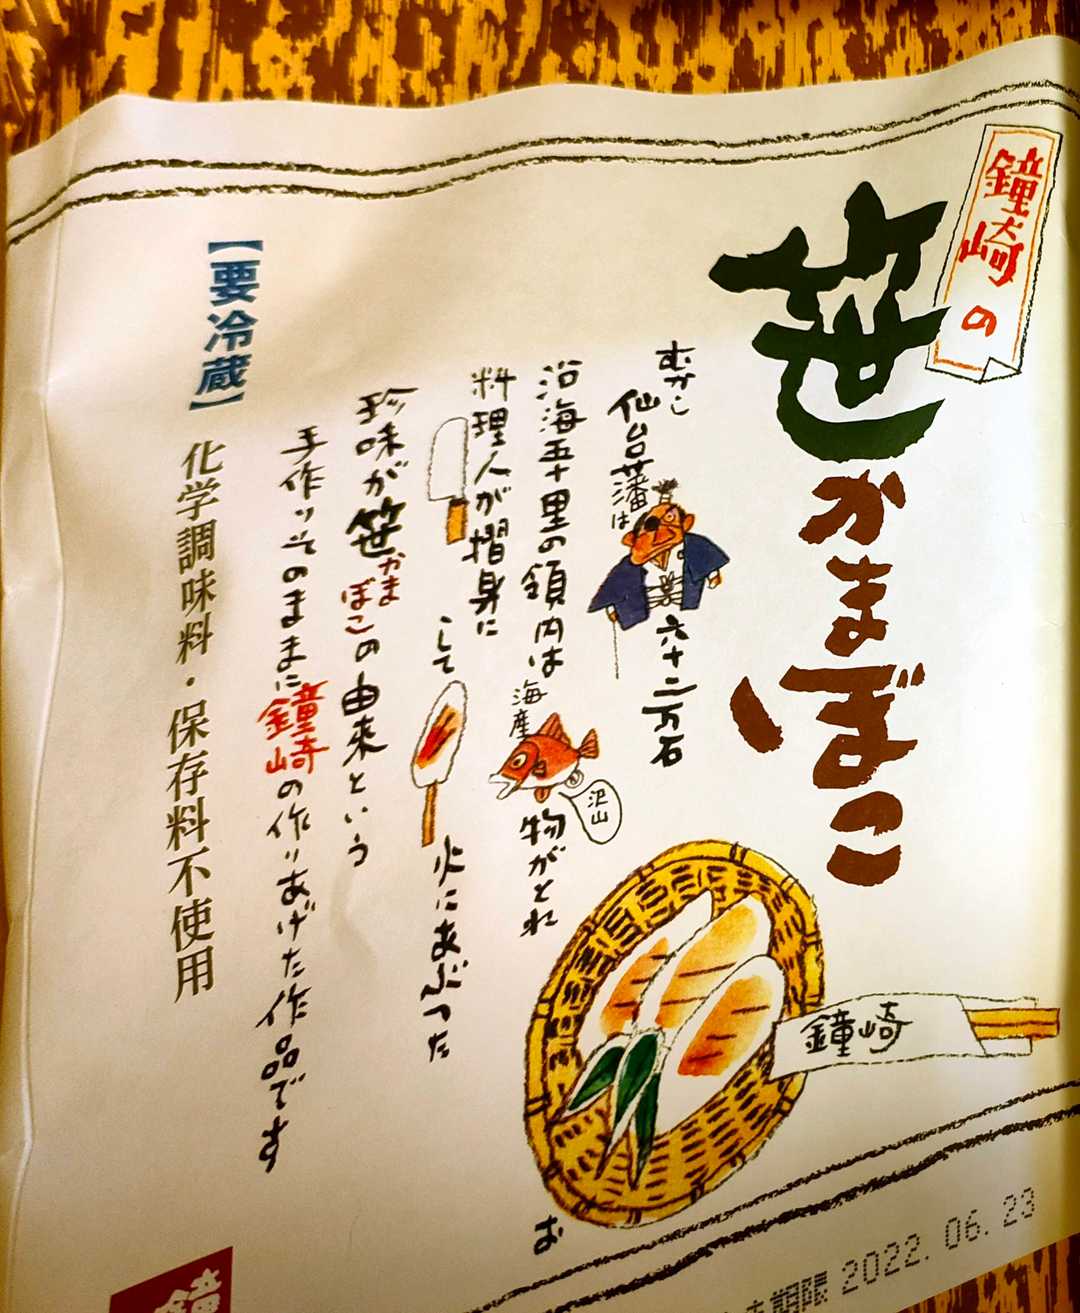 鐘崎の
笹かまぼこ
むかし
仙台藩は
六十二万石
沿海五十里の領内は
海産
沢山
物がとれ
料理人が摺身に
して
火にあぶった
珍味が笹かまぼこの由来という
手作りそのままに鐘崎の作りあげた作品です
【要冷蔵】
化学調味料・保存料不使用
鐘崎
お
期限 2022. 06. 23
鐘